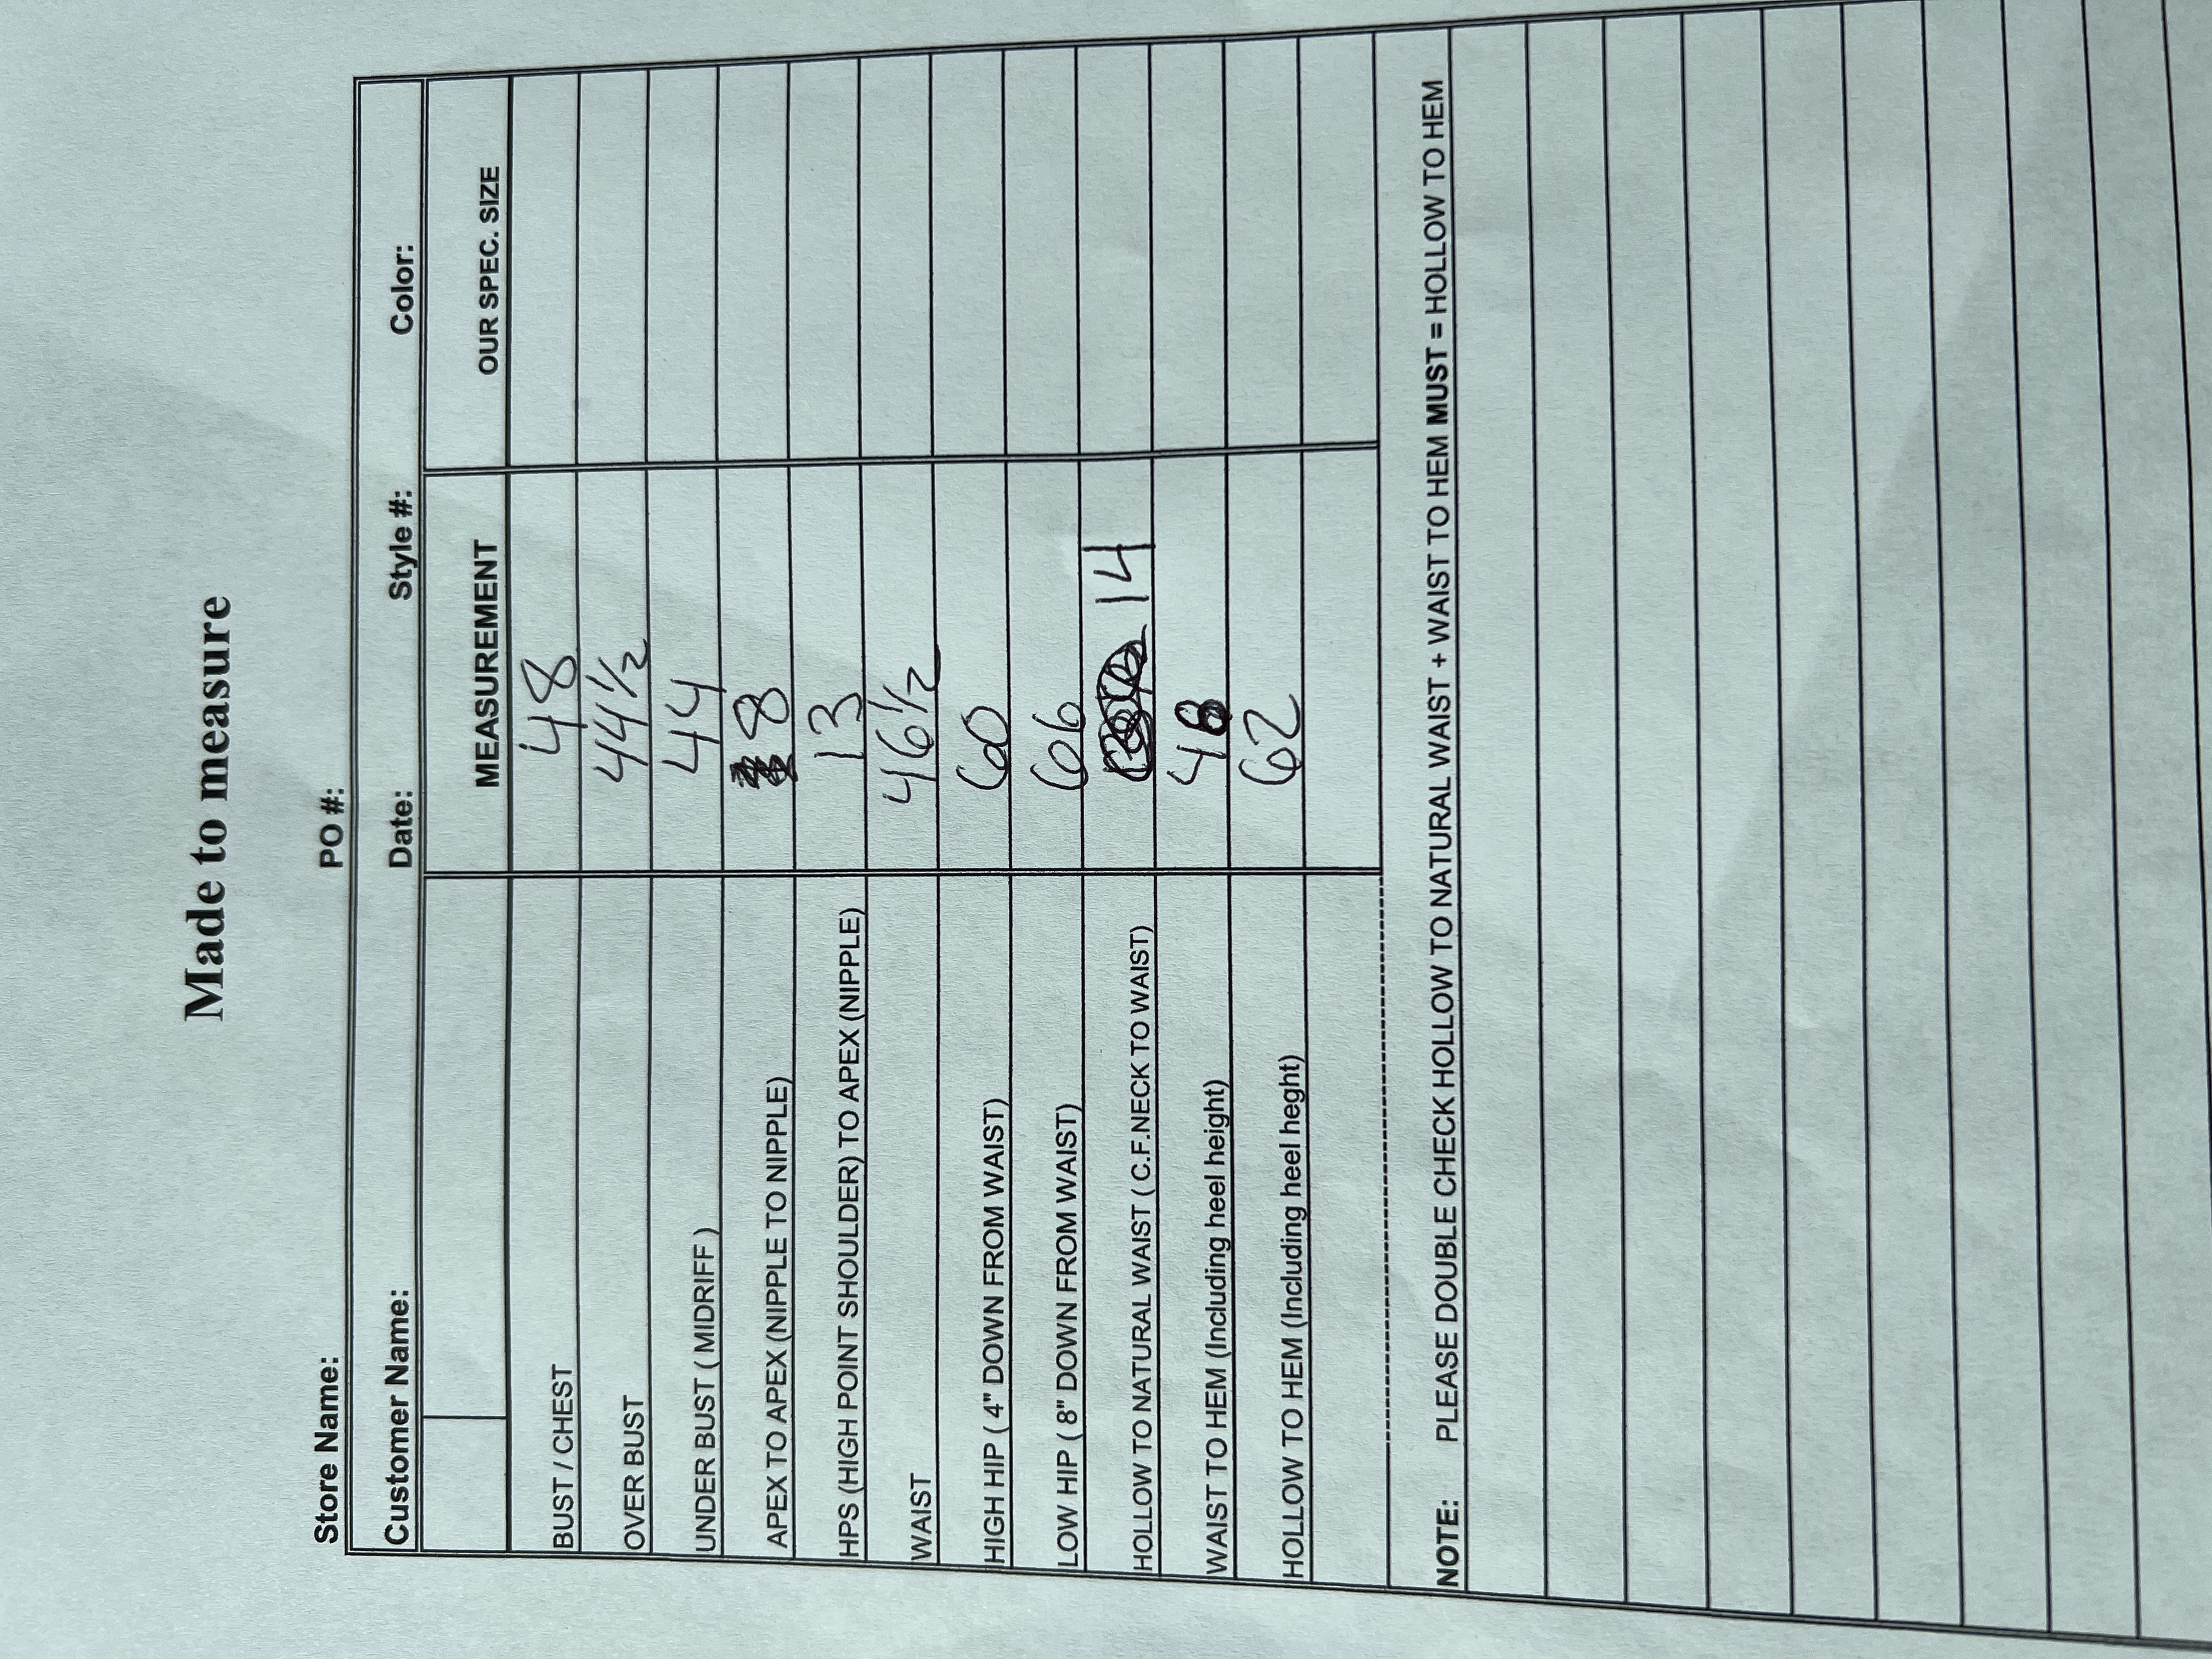 Made to measure
Store Name: PO #:
Customer Name: Date: Style #: Color:
MEASUREMENT OUR SPEC. SIZE
BUST / CHEST 48
OVER BUST 44 1/2
UNDER BUST ( MIDRIFF ) 44
APEX TO APEX (NIPPLE TO NIPPLE) 8
HPS (HIGH POINT SHOULDER) TO APEX (NIPPLE) 13
WAIST 46 1/2
HIGH HIP ( 4" DOWN FROM WAIST) 60
LOW HIP ( 8" DOWN FROM WAIST) 66
HOLLOW TO NATURAL WAIST ( C.F.NECK TO WAIST) 14
WAIST TO HEM (Including heel height) 48
HOLLOW TO HEM (Including heel heght) 62
NOTE: PLEASE DOUBLE CHECK HOLLOW TO NATURAL WAIST + WAIST TO HEM MUST = HOLLOW TO HEM